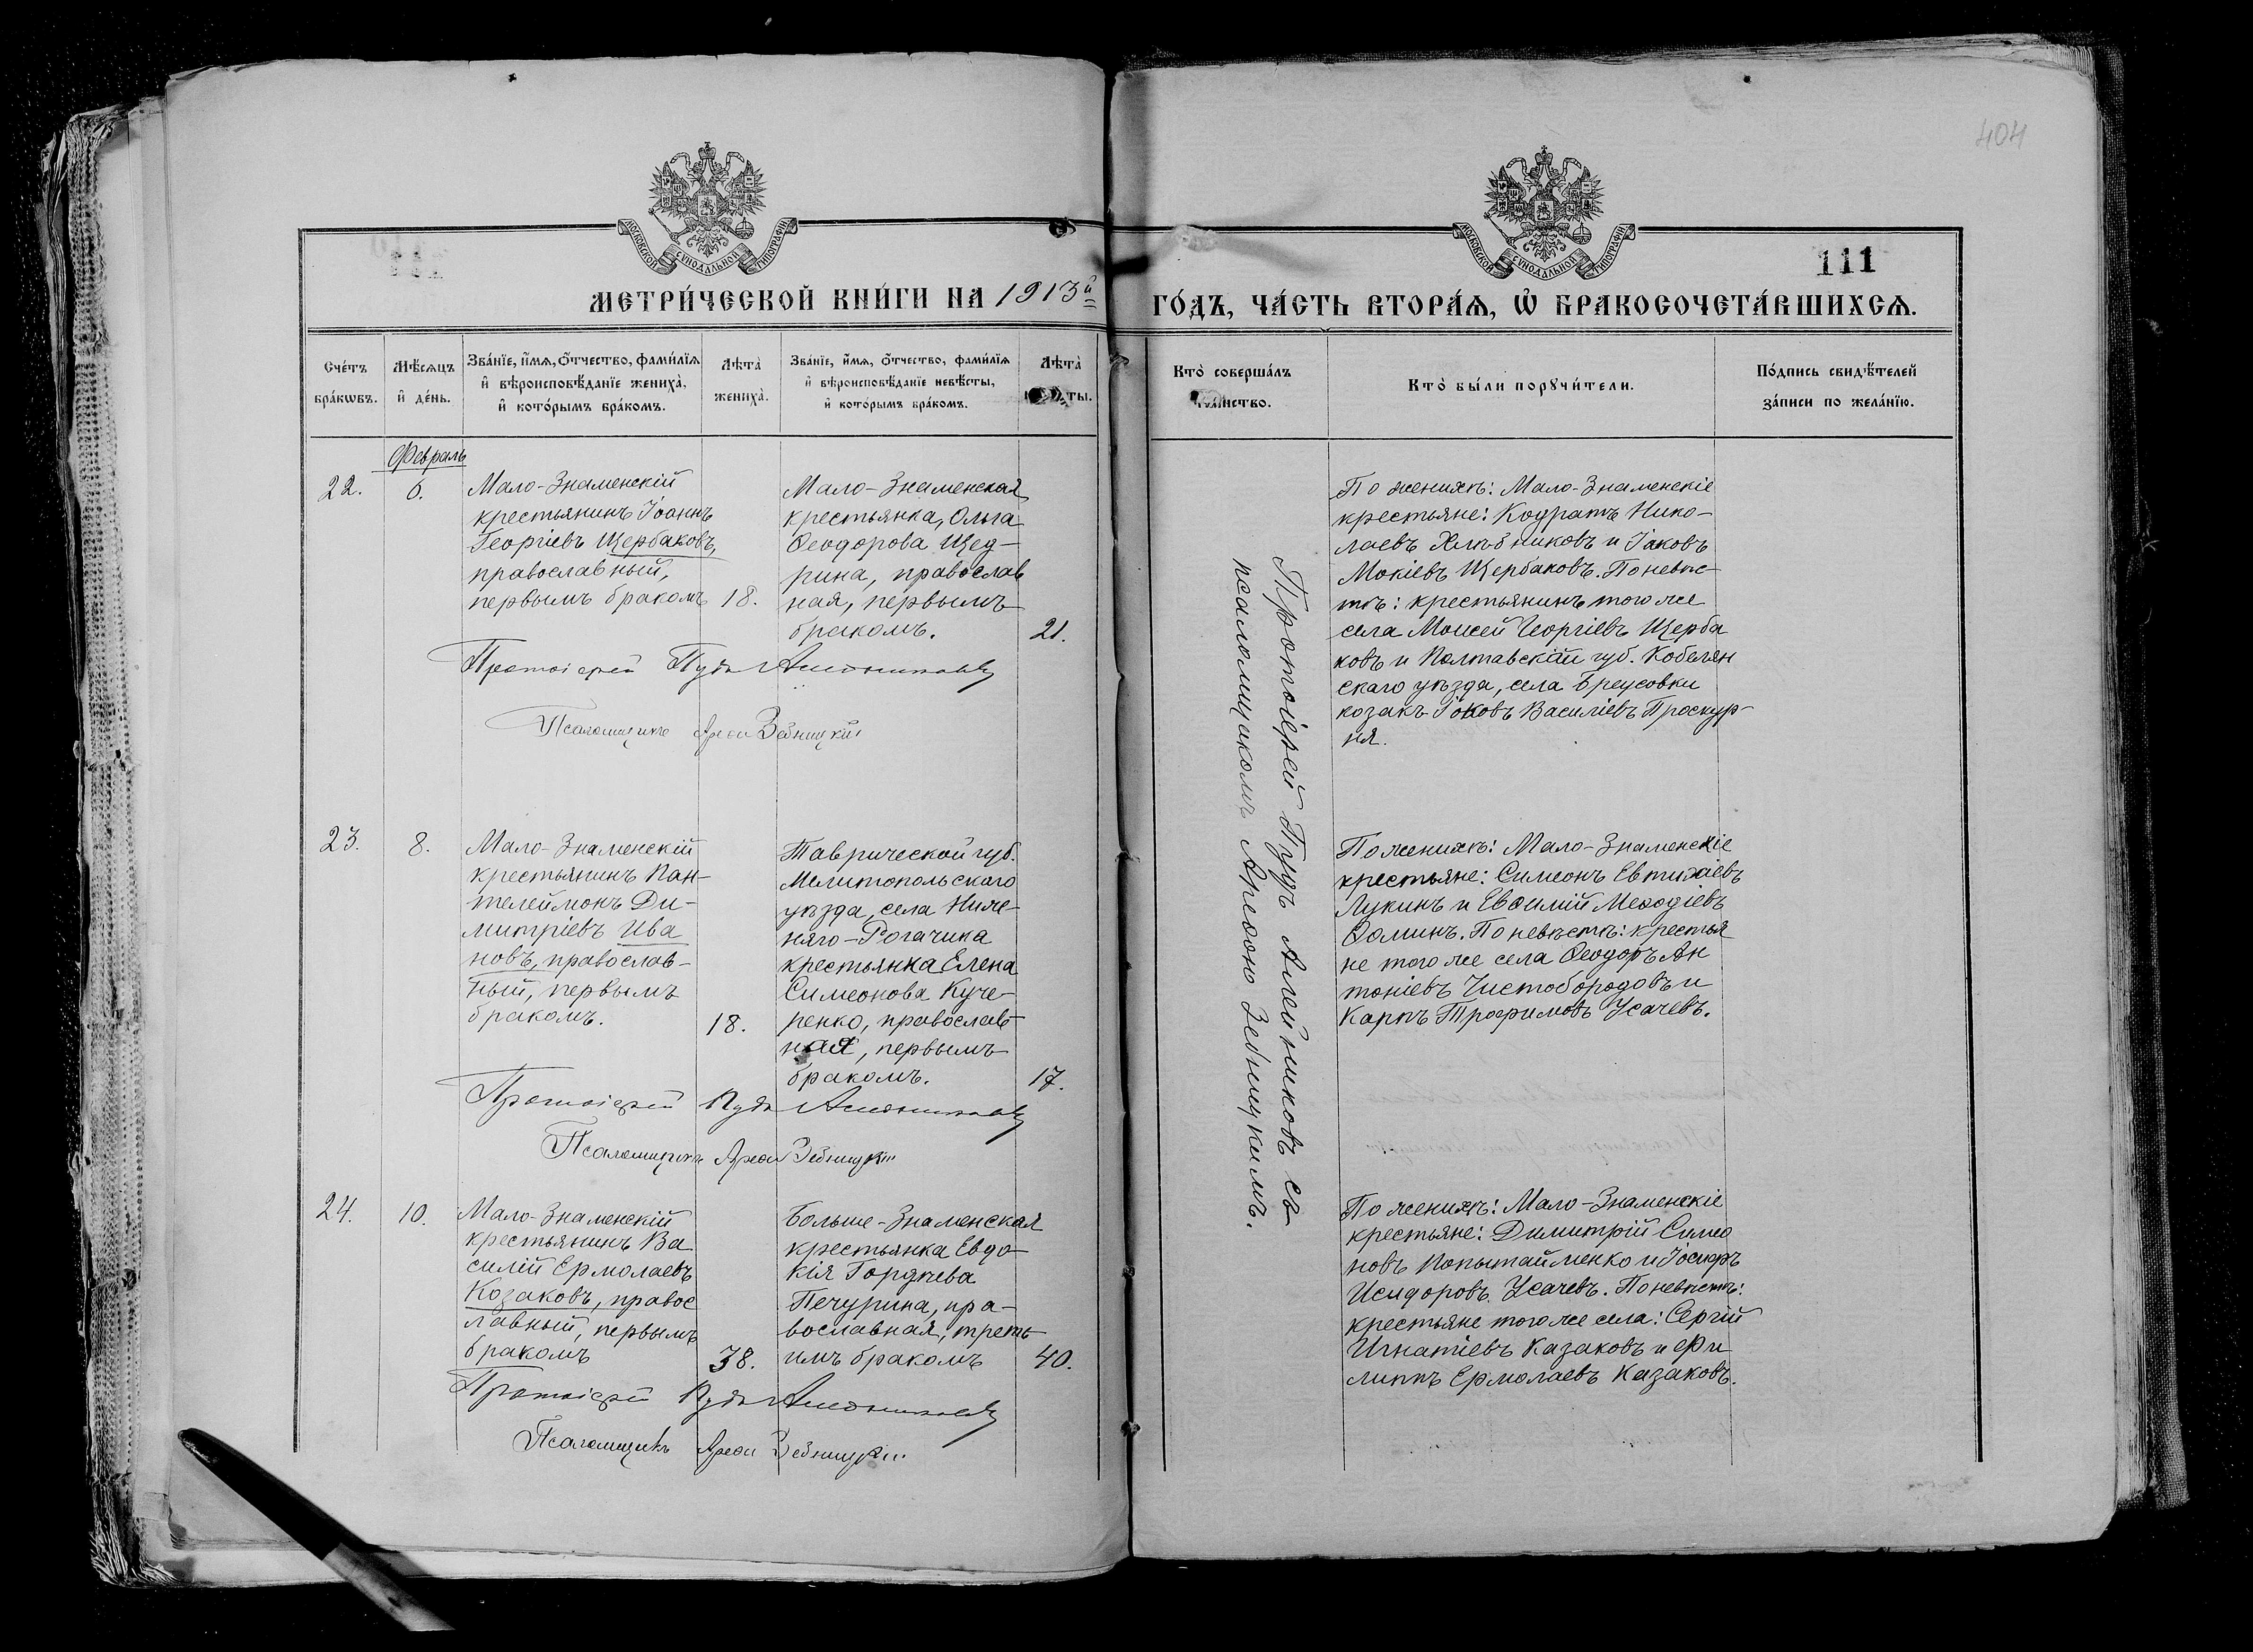 404
111
МОСКОВСКОЙ СѴНОДАЛЬНОЙ ТИПОГРАФІИ
МОСКОВСКОЙ СѴНОДАЛЬНОЙ ТИПОГРАФІИ
МЕТРИ́ЧЕСКОЙ КНИ́ГИ НА 1913й ГО́ДЪ, ЧА́СТЬ ВТОРА́Я, Ѡ҆ БРАКОСОЧЕТА́ВШИХСЯ.
Сче́тъ
бра́кѡвъ.
Мѣ́сяцъ
и҆ де́нь.
Зва́нїе, и҆́мя, ѻ҆́тчество, фами́лїя
и҆ вѣроисповѣ́данїе жениха̀,
и҆ кото́рымъ бра́комъ.
Лѣта̀
жениха̀.
Зва́нїе, и҆́мя, ѻ҆́тчество, фами́лїя
и҆ вѣроисповѣ́данїе невѣ́сты,
и҆ кото́рымъ бра́комъ.
Лѣта̀
Кто̀ соверша́лъ
та́инство.
Кто̀ бы́ли порꙋчи́тели.
По́дпись свидѣ́телей
за́писи по жела́нїю.
Февраль
22.
6.
Мало-Знаменскій
крестьянинъ Іоаннъ
Георгіевъ Щербаковъ,
православный,
первымъ бракомъ
18.
Мало-Знаменская
крестьянка, Ольга
Ѳеодорова Щед-
рина, православ
ная, первымъ
бракомъ.
21.
По женихѣ: Мало-Знаменскіе
крестьяне: Кодратъ Нико-
лаевъ Хлѣбниковъ и Іаковъ
Мокіевъ Щербаковъ. По невѣс-
тѣ: крестьянинъ того же
села Моисей Георгіевъ Щерба
ковъ и Полтавской губ. Кобелян
скаго уѣзда, села Бреусовки
козакъ Іаковъ Василіевъ Проскур-
ня.
Протоіерей Пудъ Алейниковъ
Псаломщикъ Ареѳа Зебницкій
Протоіерей Пудъ Алейниковъ съ
псаломщикомъ Ареѳою Зебницкимъ.
23.
8.
Мало-Знаменскій
крестьянинъ Пан-
телеймонъ Ди-
митріевъ Ива
новъ, православ-
ный, первымъ
бракомъ.
18.
Таврической губ.
Мелитопольскаго
уѣзда, села Ниж-
няго-Рогачика
крестьянка Елена
Симеонова Куче-
ренко, православ-
ная, первымъ
бракомъ.
17.
По женихѣ: Мало-Знаменскіе
крестьяне: Симеонъ Евтихіевъ
Лукинъ и Евѳимій Меѳодіевъ
Ѳоминъ. По невѣстѣ: крестья
не того же села Ѳеодоръ Ан
тоніевъ Чистобородовъ и
Карпъ Трофимовъ Усачевъ.
Протоіерей Пудъ Алейниковъ
Псаломщикъ Ареѳа Зебницкій
24.
10.
Мало-Знаменскій
крестьянинъ Ва
силій Ермолаевъ
Козаковъ, правос
лавный, первымъ
бракомъ
38.
Больше-Знаменская
крестьянка Евдо-
кія Гордѣева
Печурина, пра-
вославная, треть
имъ бракомъ
40.
По женихѣ: Мало-Знаменскіе
крестьяне: Димитрій Симео
новъ Попытайменко и Іосифъ
Исидоровъ Усачевъ. По невѣстѣ:
крестьяне того же села: Сергій
Игнатіевъ Казаковъ и Фи
липпъ Ермолаевъ Казаковъ.
Протоіерей Пудъ Алейниковъ
Псаломщикъ Ареѳа Зебницкій